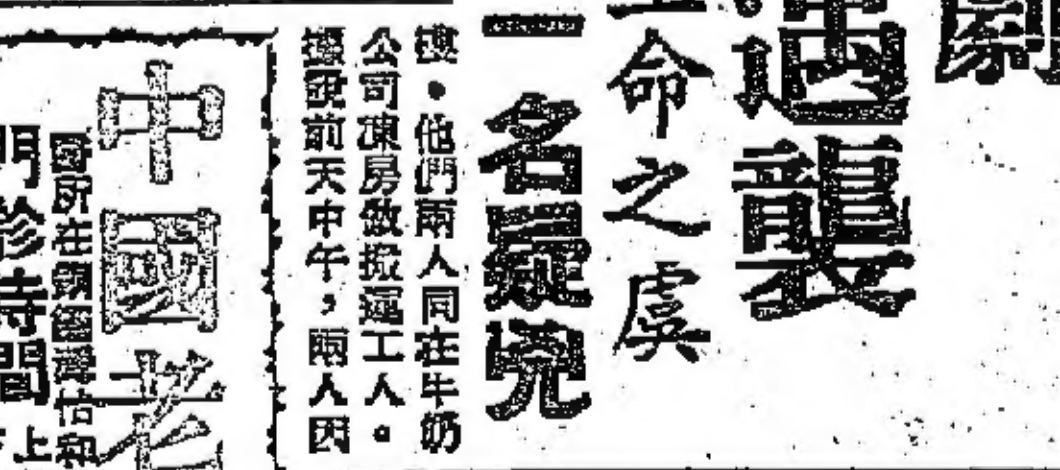 劇
遇襲
命之虞
一名疑兇
樓。他們兩人同在牛奶
公司凍房做搬運工人。
據說前天中午，兩人因
中國老
所在銅鑼灣怡和
門診時間
上